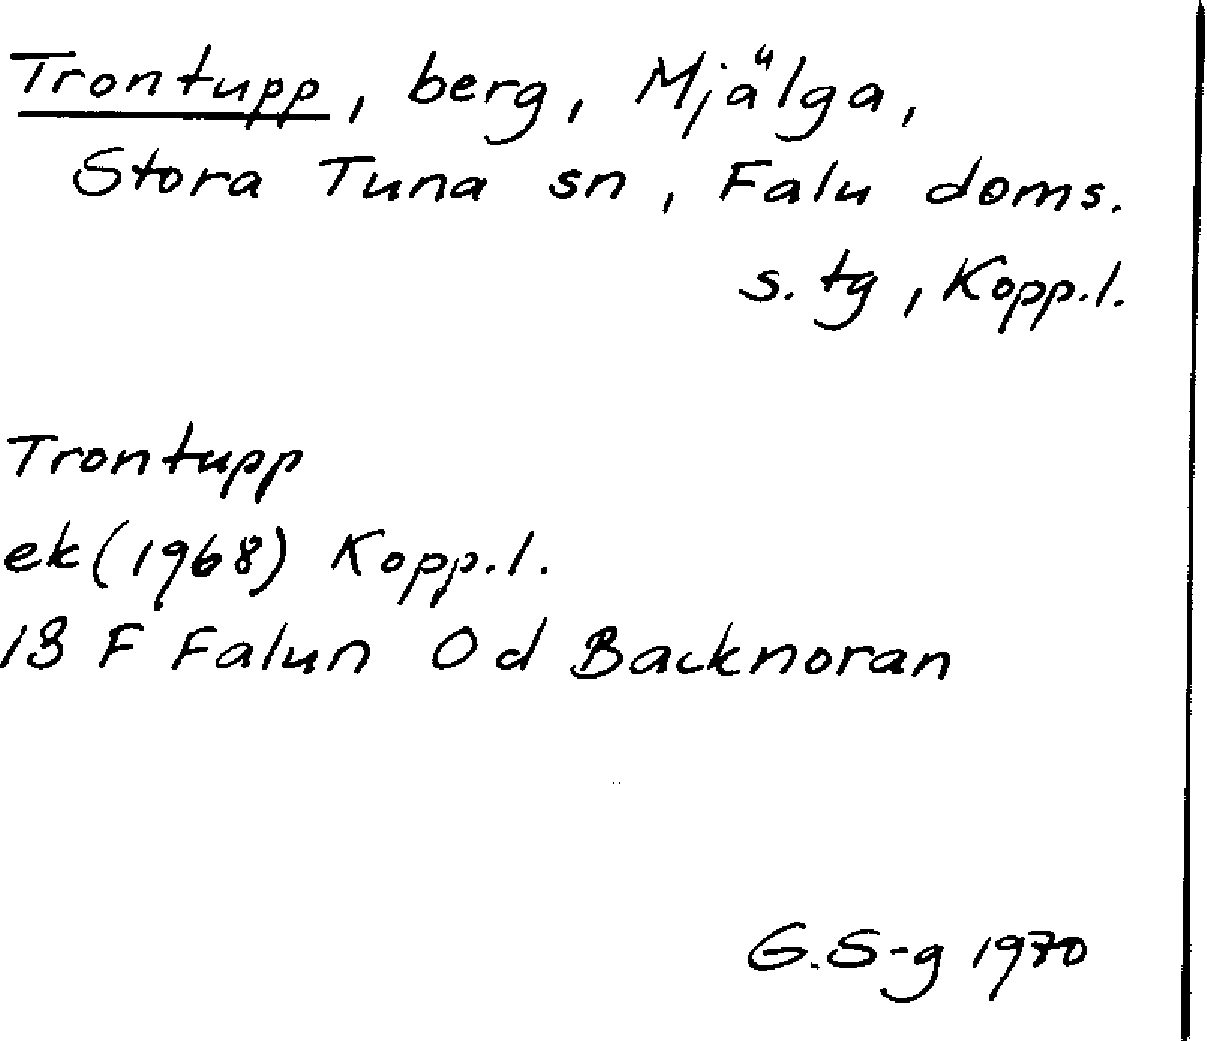 Trontupp, berg, Mjälga,
Stora Tuna sn, Falu doms.
s. tg, Kopp.l.
Trontupp
ek (1968) Kopp.l.
13 F Falun 0 d Backnoran
G.S-g 1970